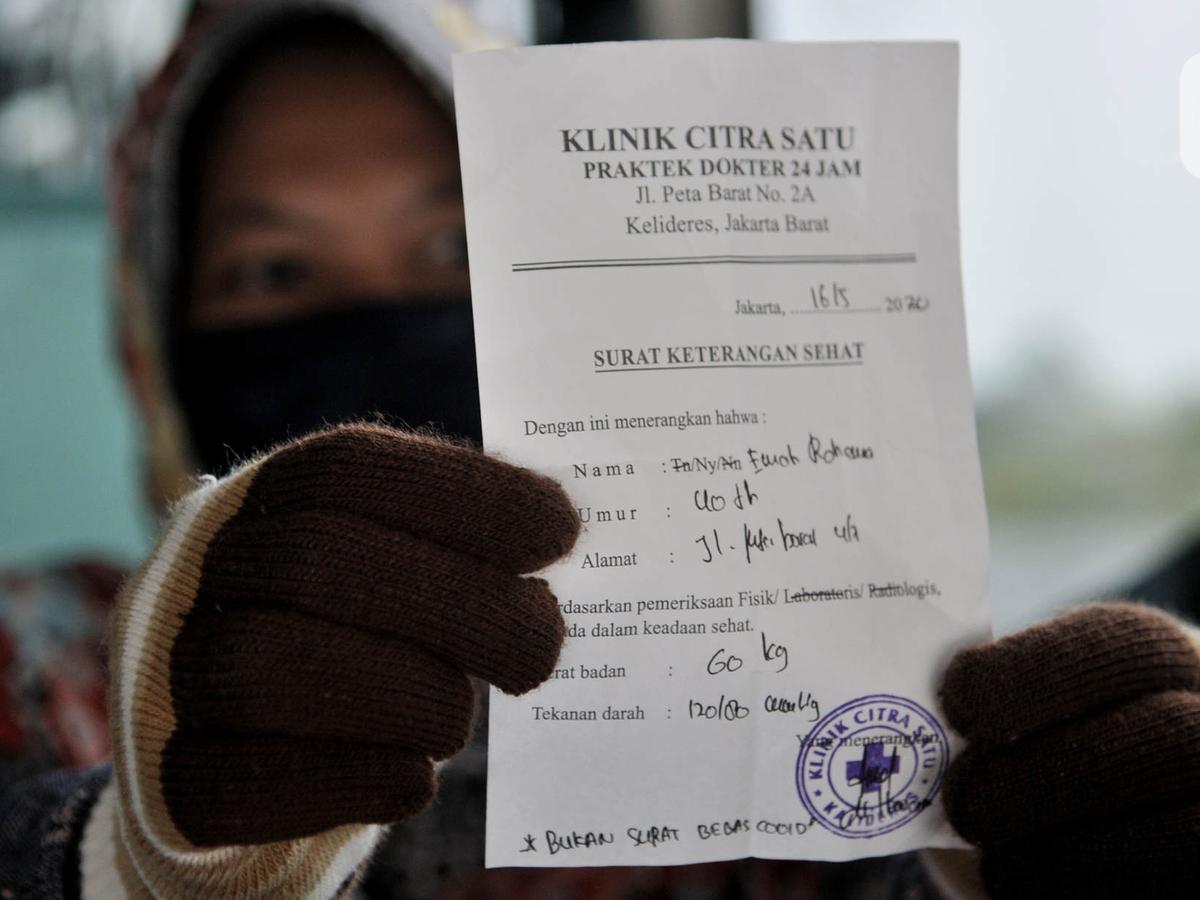 KLINIK CITRA SATU
PRAKTEK DOKTER 24 JAM
Jl. Peta Barat No. 2A
Kelideres, Jakarta Barat
Jakarta, 16/5 2020
SURAT KETERANGAN SEHAT
Dengan ini menerangkan hahwa :
Nama : Tn/Ny/Nn
Umur : 40 th
Alamat : Jl.
rdasarkan pemeriksaan Fisik/ Laboratoris/ Radiologis,
da dalam keadaan sehat.
rat badan : 60 kg
Tekanan darah : 120/80 mmHg
Yang menerangkan,
KLINIK CITRA SATU
* BUKAN SURAT BEBAS COVID